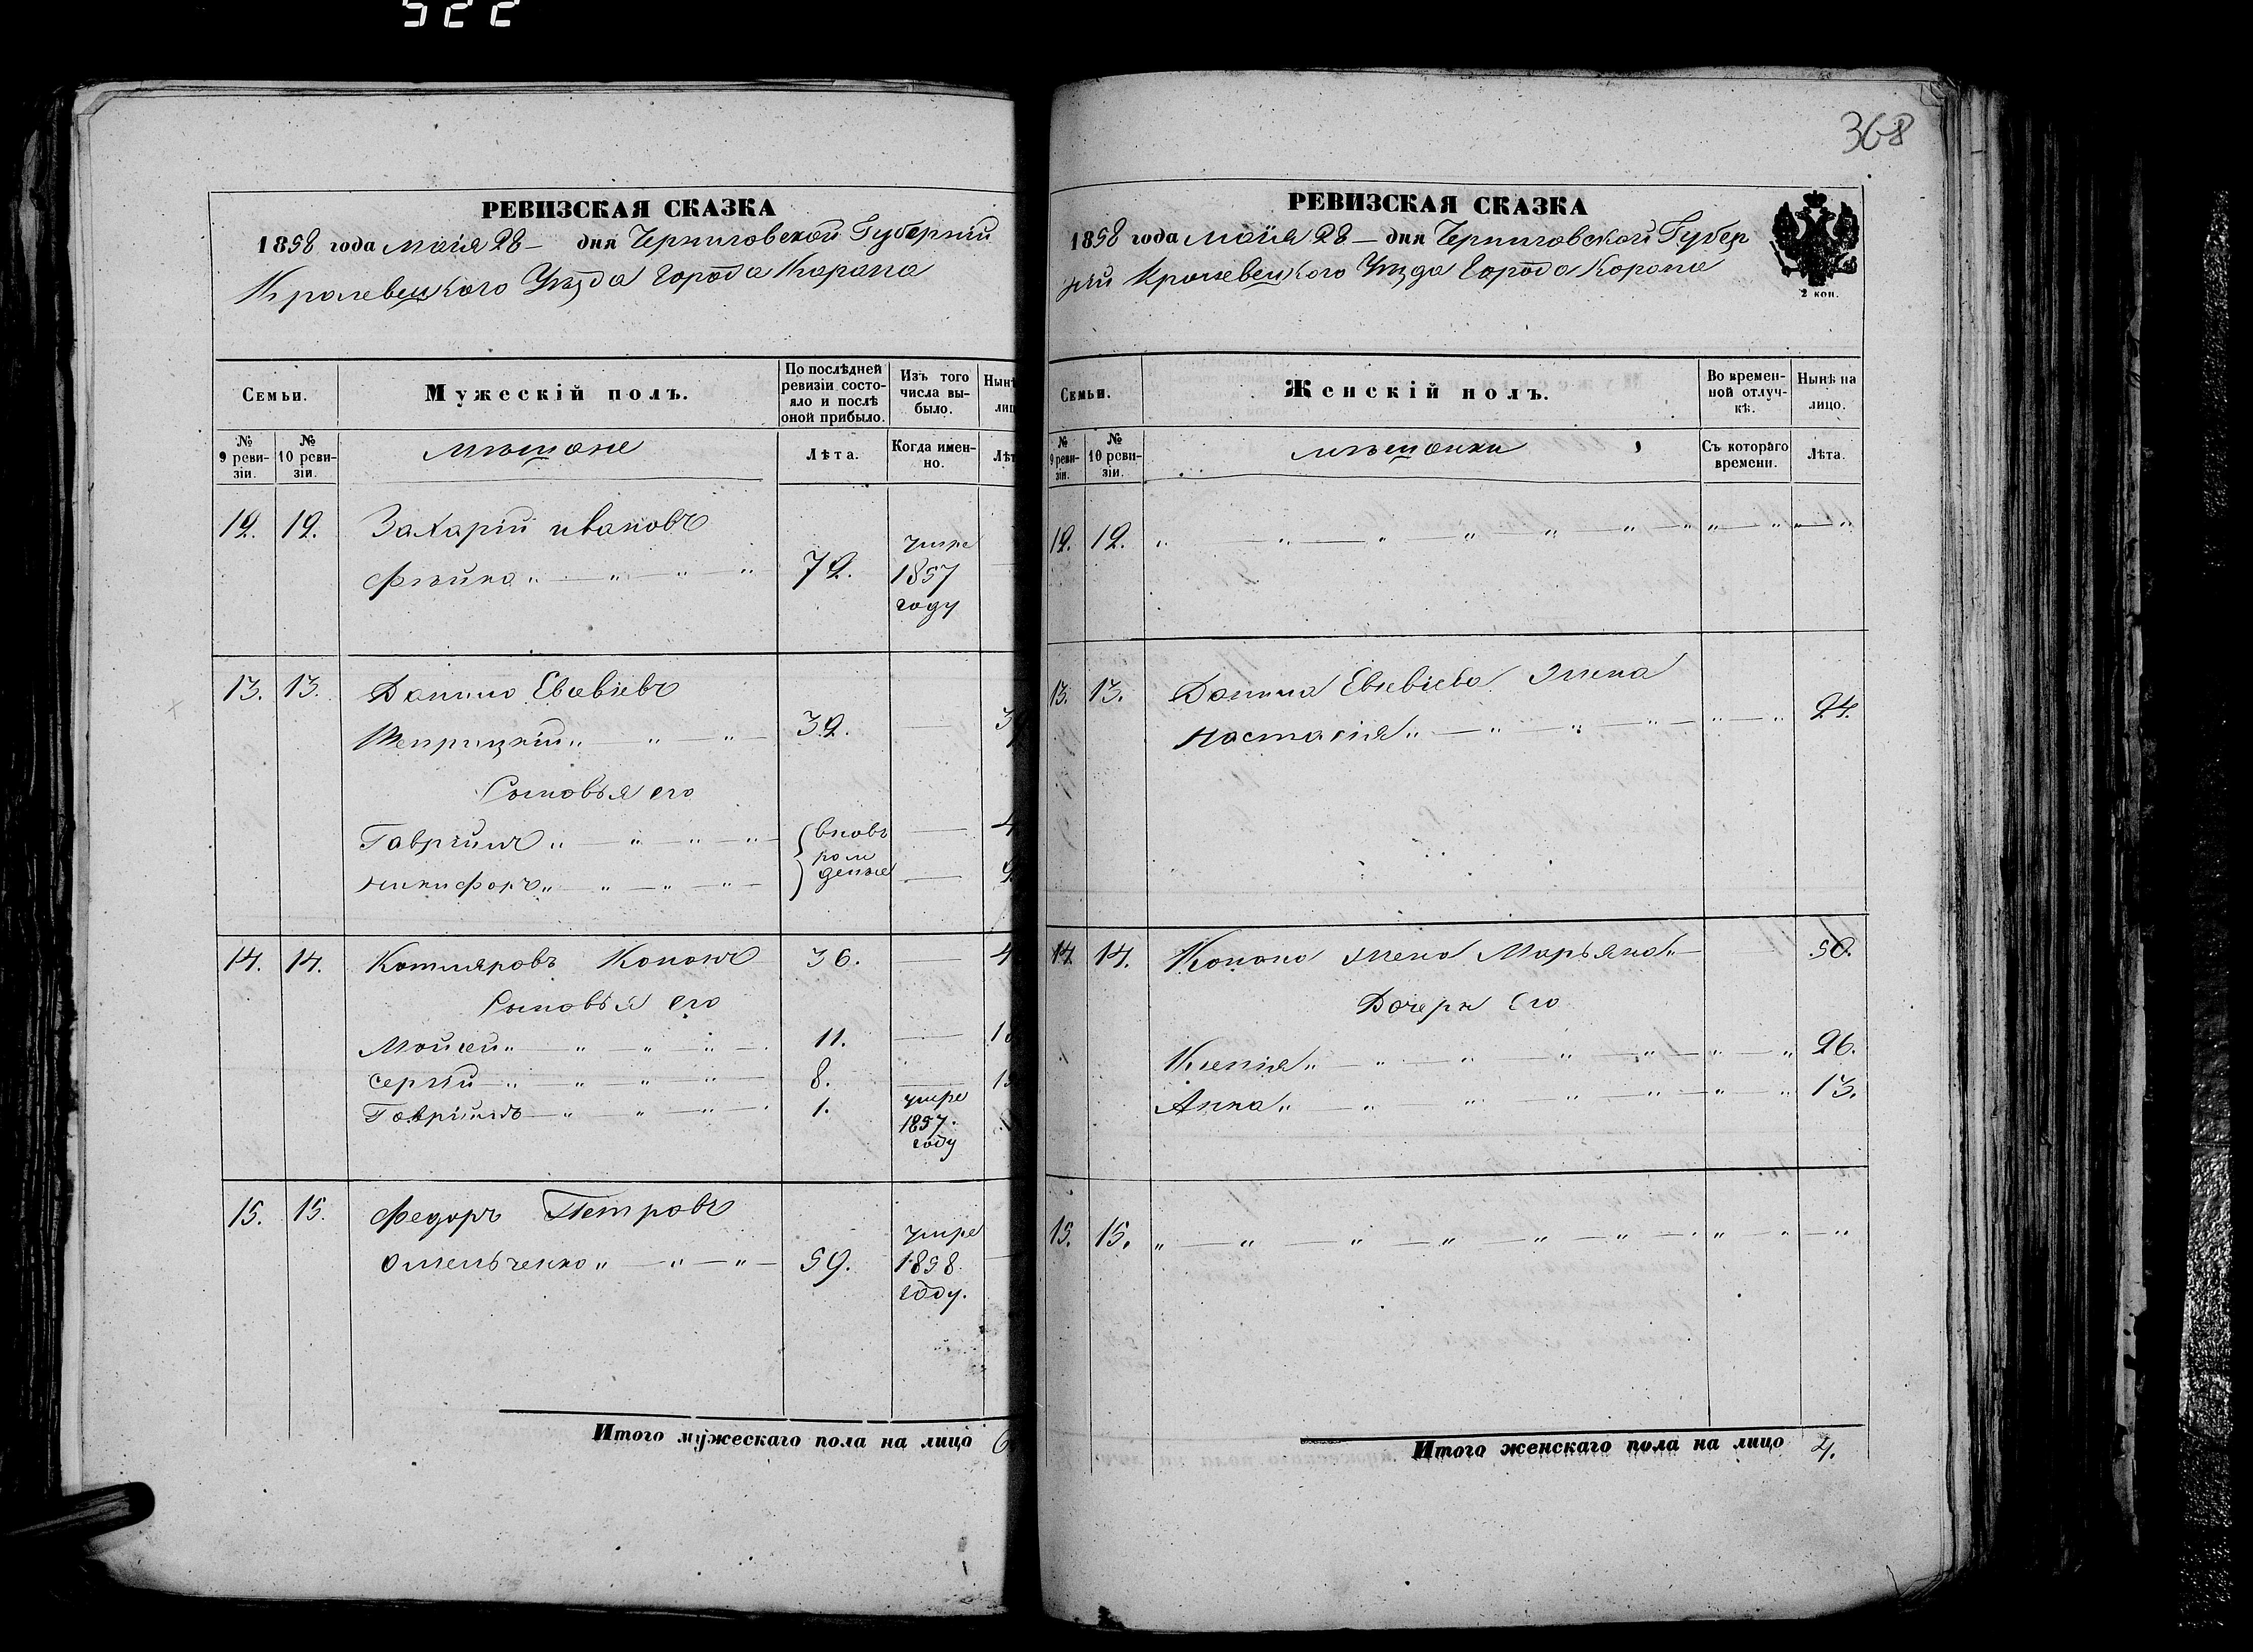 522
368
РЕВИЗСКАЯ СКАЗКА
1858 года Маія 28 — дня Черниговской Губерніи
Кролевецкого Уѣзда Города Коропа
Семьи.
Мужескій полъ.
По послѣдней ревизіи состояло и послѣ оной прибыло.
Изъ того числа выбыло.
Нынѣ
лиц
№ 9 ревизіи.
№ 10 ревизіи.
мѣщане
Лѣта.
Когда именно.
Лѣт
12. 12. Захарій Ивановъ
72. умре 1857 году
13. 13. Данило Евсевіевъ
32. — 3
Сыновья его
Гавріилъ „ — „ — „ — „ — вновь рожденые — 4
Никифоръ „ — „ — „ — „ — — 2
14. 14. Котляровъ Кононъ 36. — 4
Сыновья его
Мойсей „ — „ — „ — „ — 11. — 1
Сергій „ — „ — „ — „ — 8. — 1
Гавріилъ — „ — „ — „ — 1. умре 1857. году
15. 15. Федоръ Петровъ
Омельченко „ — „ — „ — 59. умре 1858. году.
Итого мужескаго пола на лицо 6
РЕВИЗСКАЯ СКАЗКА
1858 года Маія 28 — дня Черниговской Губер
ніи Кролевецкого Уѣзда Города Коропа
2 коп.
Семьи.
Женскій полъ.
Во временной отлучкѣ.
Нынѣ на лицо.
№ 9 ревизіи.
№ 10 ревизіи.
мѣщанки
Съ котораго времени.
Лѣта.
12. 12. „ — „ — „ — „ — „ — „ — „ „ — „ „ — „
13. 13. Данила Евсевіева жена
Настасія „ — „ — „ — „ — „ — „ 24.
14. 14. Конона жена Марьяна „ — 50.
Дочери Его
Ксенія „ — „ — „ — „ — „ — „ — „ 26.
Анна „ — „ — „ — „ — „ — „ — „ 13.
15. 15. „ — „ — „ — „ — „ — „ — „ — „ — „
Итого женскаго пола на лицо 4.